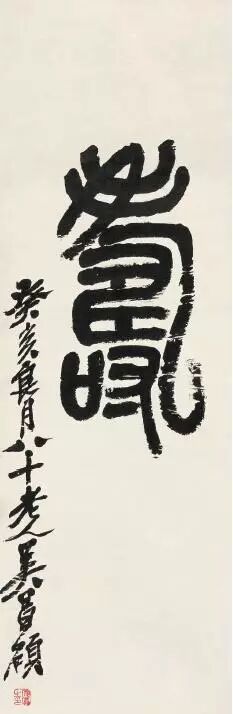 壽
癸亥良月八十老人吴昌碩